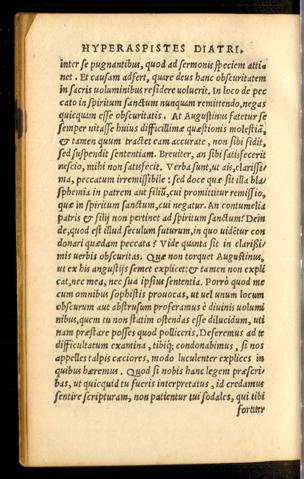 HYPERASPISTES DIATRI.
inter se pugnantibus, quod ad sermonis speciem atti-
net. Et causam adfert, quare deus hanc obscuritatem
in sacris voluminibus residere voluerit. In loco de pec
cato in spiritum sanctum nunquam remittendo, negas
quicquam esse obscuritatis. At Augustinus fatetur se
semper uitasse huius difficillimæ quæstionis molestiā,
& tamen quum tractet eam accurate, non sibi fidit,
sed suspendit sententiam. Breuiter, an sibi satisfecerit
nescio, mihi non satisfecit. Verba sunt, ut ais, clarissi-
ma, peccatum irremissibile: sed doce quæ sit illa blas
phemia in patrem aut filiū, cui promittitur remissio,
quæ in spiritum sanctum, cui negatur. An contumelia
patris & filij non pertinet ad spiritum sanctum? Dein
de, quod est illud seculum futurum, in quo uidētur con
donari quædam peccata? Vide quanta sit in clarissi-
mis uerbis obscuritas. Quæ non torquet Augustinus,
ut ex his angustijs semet explicet: & tamen non expli
cat, nec mea, nec sua ipsius sententia. Porrò quod me
cum omnibus sophistis prouocas, ut uel unum locum
obscurum aut abstrusum proferamus è diuinis uolumi
nibus, quem tu non statim ostendas esse dilucidum, uti
nam præstare posses quod polliceris. Deferemus ad te
difficultatum examina, tibiq; condonabimus, si nos
appelles talpis cæciores, modo luculenter explices in
quibus hæremus. Quod si nobis hanc legem præscri
bas, ut quicquid tu fueris interpretatus, id credamus
sentire scripturam, non patientur tui sodales, qui tibi
fortiter